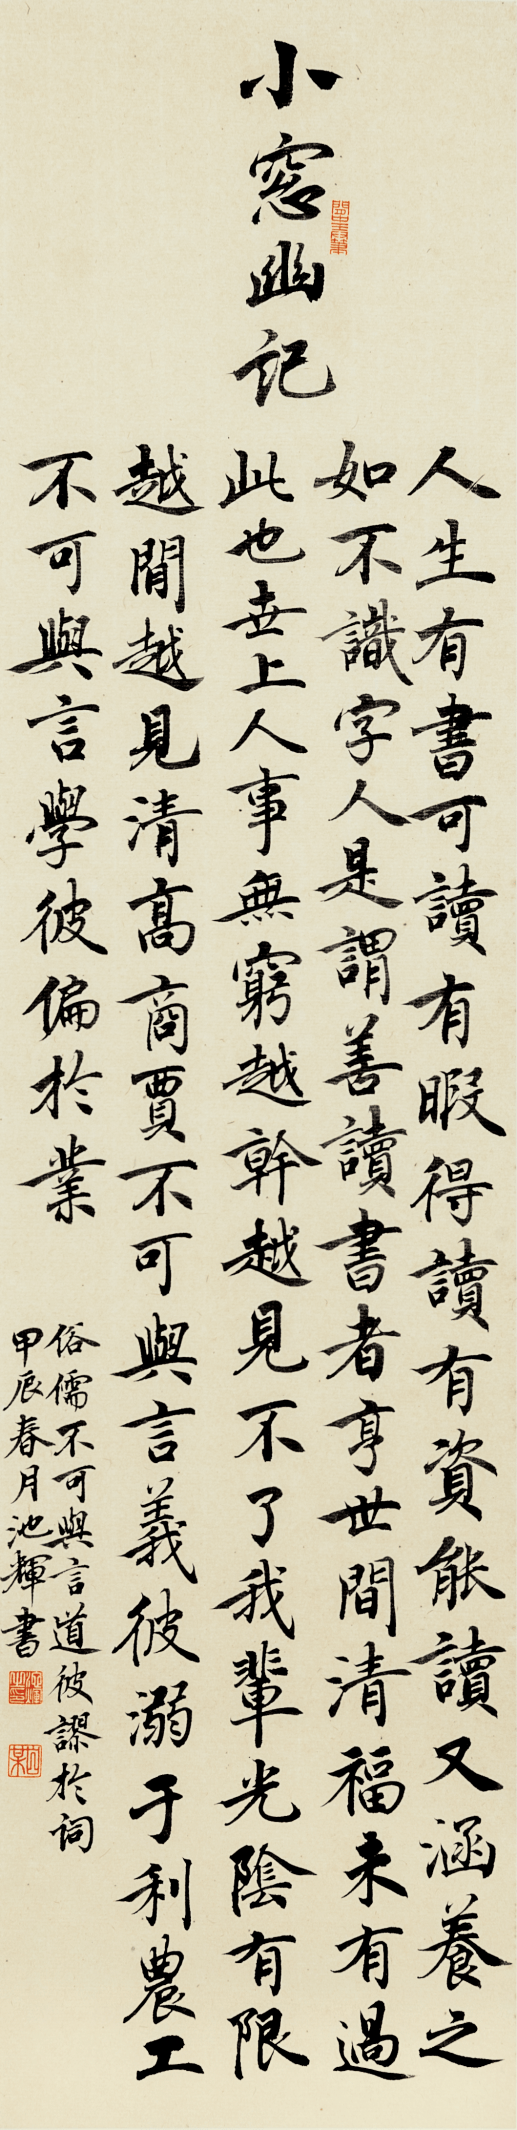 小窓幽記
人生有書可讀有暇得讀有資能讀又涵養之
如不識字人是謂善讀書者享世間清福未有過
此也世上人事無窮越幹越見不了我輩光陰有限
越閒越見清高商賈不可與言義彼溺于利農工
不可與言學彼偏於業
俗儒不可與言道彼謬於詞
甲辰春月池輝書